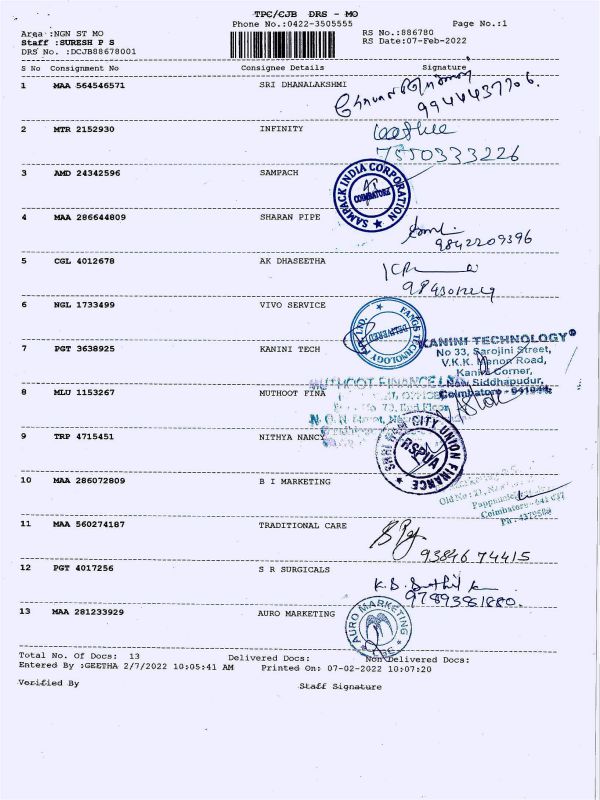 TPC/CJB DRS - MO
Phone No.:0422-3505555 Page No.:1
Area :NGN ST MO RS No.:886780
Staff :SURESH P S RS Date:07-Feb-2022
DRS No. :DCJB88678001
S No Consignment No Consignee Details Signature
1 MAA 564546571 SRI DHANALAKSHMI
9944437706.
2 MTR 2152930 INFINITY
7550333226
3 AMD 24342596 SAMPACH
SAMPACK INDIA CORPORATION
COIMBATORE
4 MAA 286644809 SHARAN PIPE
9842209396
5 CGL 4012678 AK DHASEETHA
6 NGL 1733499 VIVO SERVICE
FANGS TECHNOLOGY PVT LTD.
DELIVERED
7 PGT 3638925 KANINI TECH
KANINI TECHNOLOGY
No 33, Sarojini Street,
V.K.K. Menon Road,
Kanini Corner,
New Siddhapudur,
Coimbatore - 641044.
8 MLU 1153267 MUTHOOT FINA
MUTHOOT FINANCE
9 TRP 4715451 NITHYA NANCY
SHRI RAM CITY UNION FINANCE
RSPUA
10 MAA 286072809 B I MARKETING
Old No : 21,
Coimbatore - 641 037
Ph : 4379589
11 MAA 560274187 TRADITIONAL CARE
93846 74415
12 PGT 4017256 S R SURGICALS
9789381880.
13 MAA 281233929 AURO MARKETING
AURO MARKETING
CBE
Total No. Of Docs: 13 Delivered Docs: Non Delivered Docs:
Entered By :GEETHA 2/7/2022 10:05:41 AM Printed On: 07-02-2022 10:07:20
Verified By Staff Signature